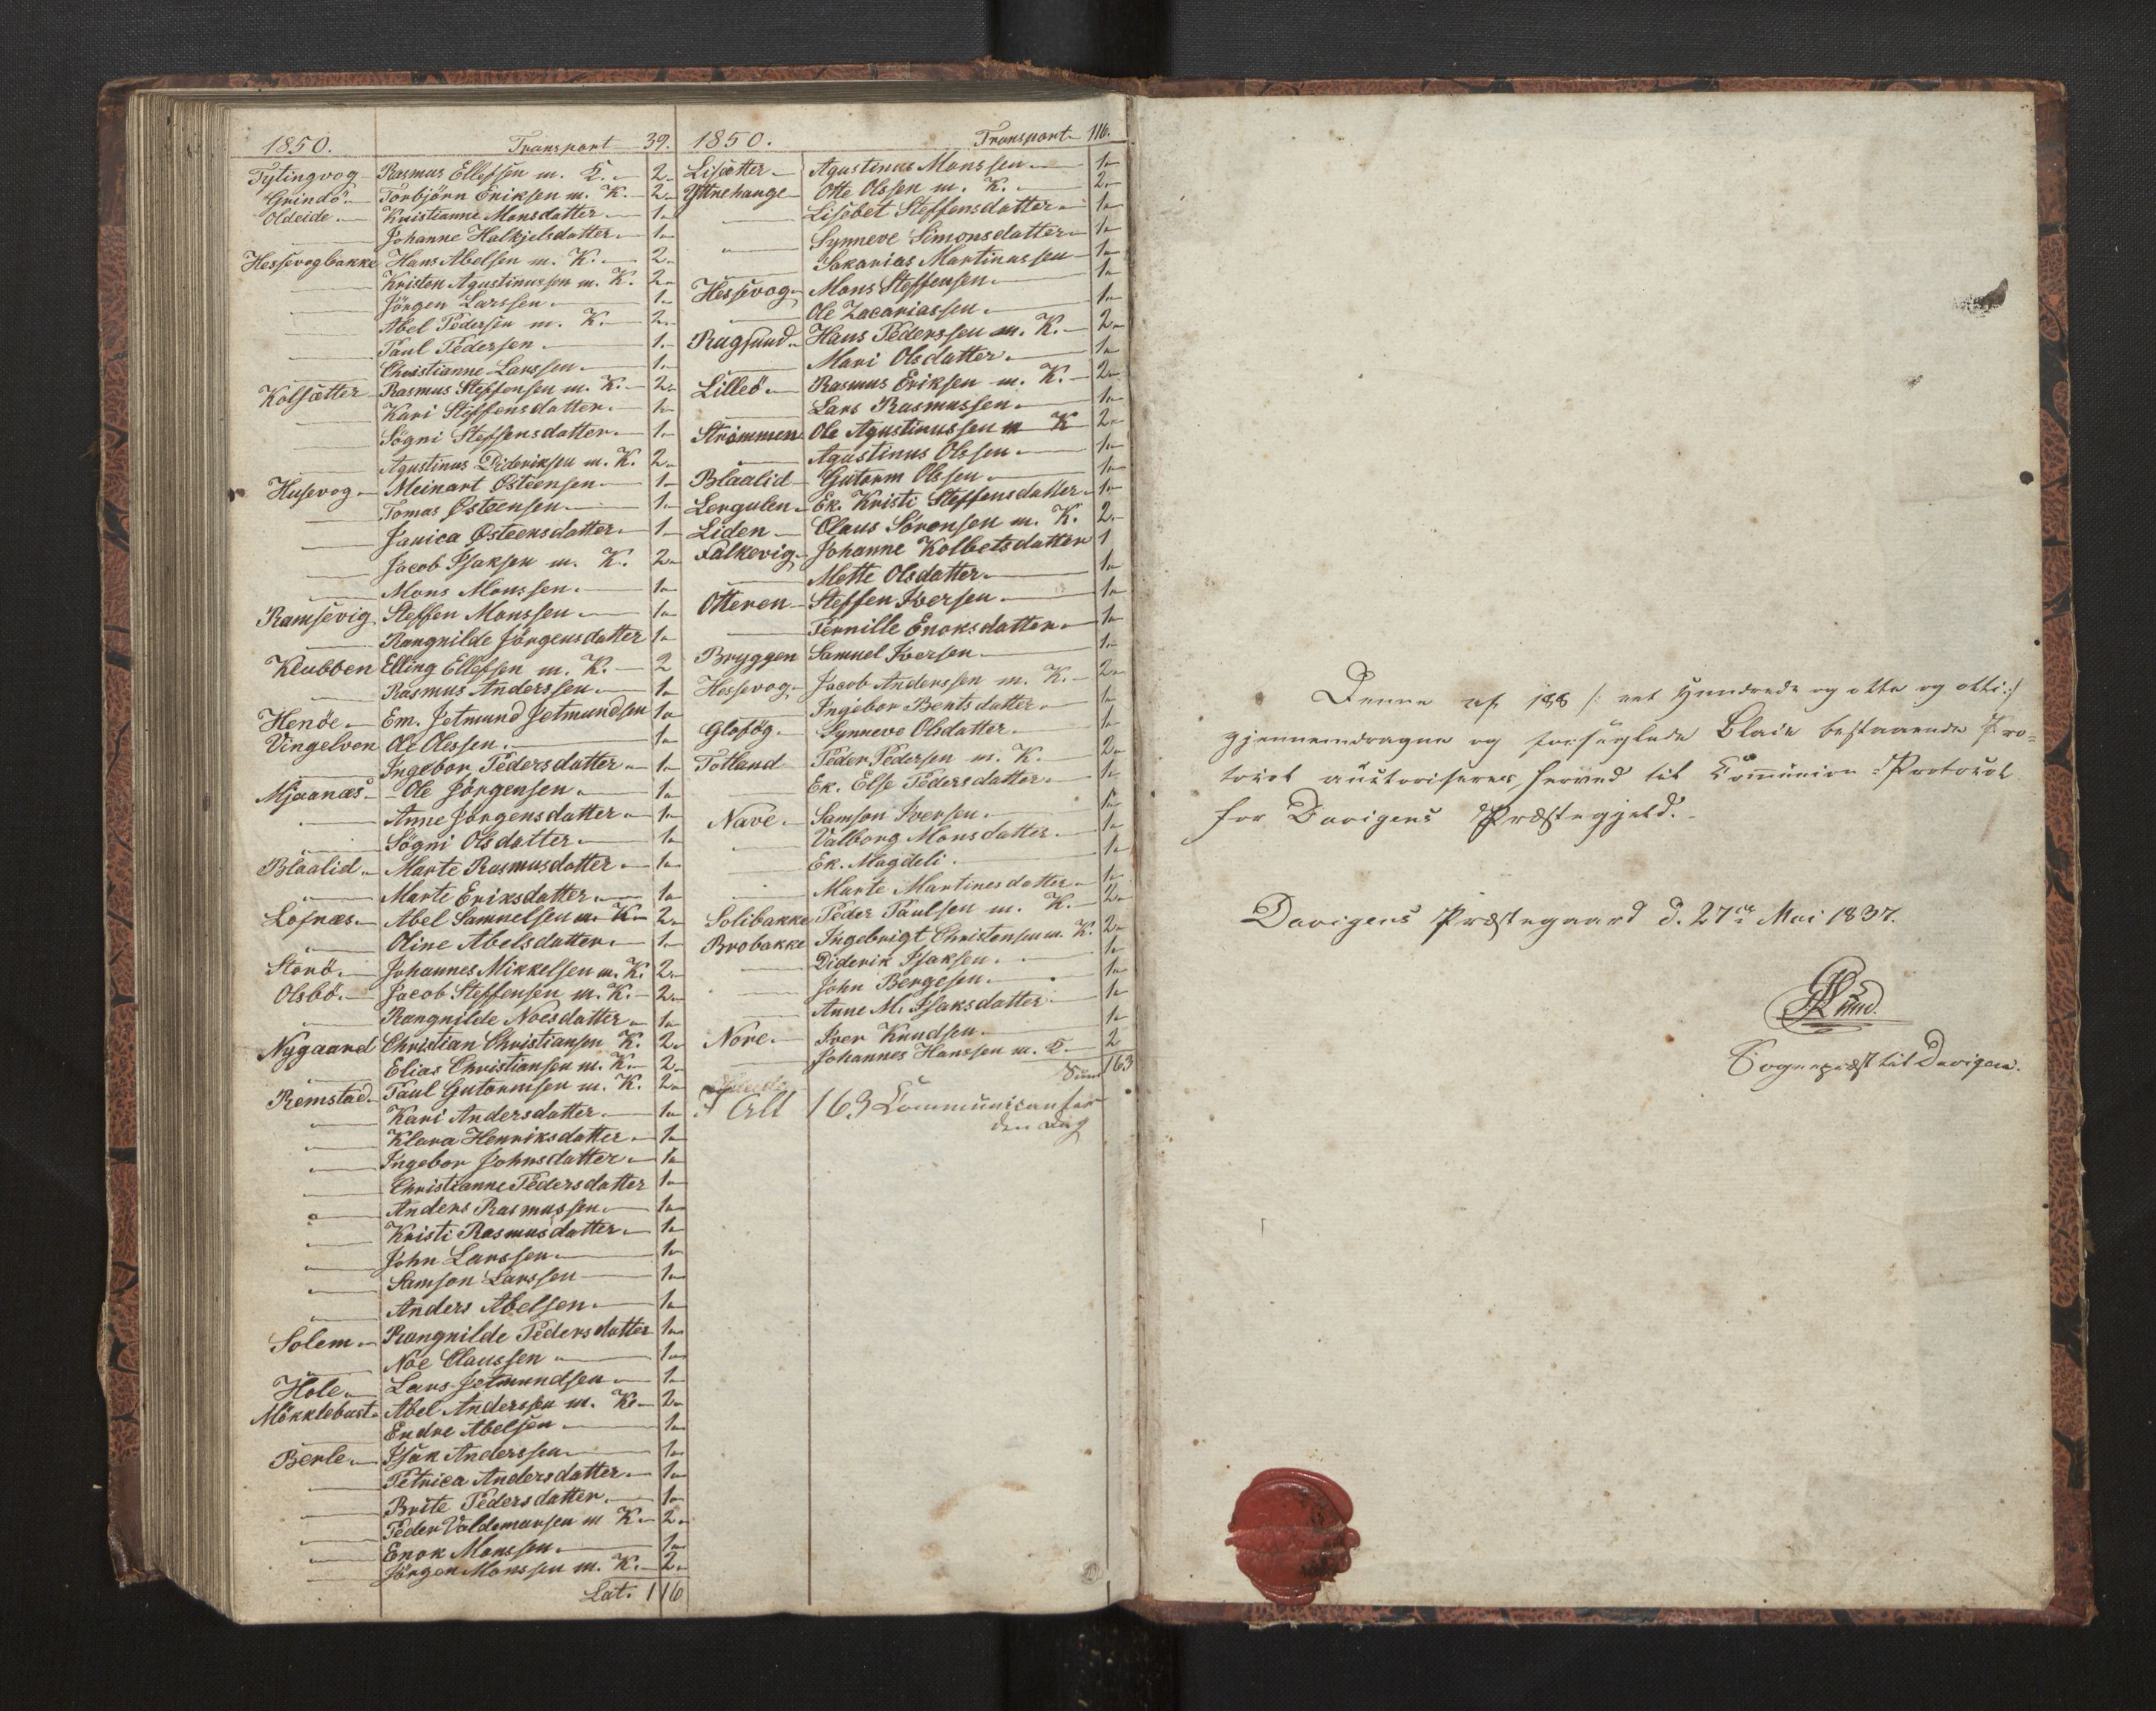 1850. Transport 39.
Tytingvog Rasmus Ellefsen m. K. 2
Grindö Torbjörn Eriksen m. K. 2
Oldeide Kristianne Monsdatter 1
Johanne Halkjelsdatter 1
Hessevogbakke Hans Abelsen m. K. 2
Kristen Agustinussen m. K. 2
Jörgen Larssen 1
Abel Pedersen m. K. 2
Paul Pedersen 1
Christianne Larssen 1
Kolsætter Rasmus Steffensen m. K. 2
Kari Steffensdatter 1
Sögni Steffensdatter 1
Agustinus Dideriksen m. K. 2
Husevog Meinart Østeensen 1
Tomas Østeensen 1
Janica Østeensdatter 1
Jacob Isaksen m. K. 2
Mons Monssen 1
Ramsevig Steffen Monssen 1
Rangnilde Jörgensdatter 1
Klubben Elling Ellefsen m. K. 2
Rasmus Anderssen 1
Henöe Em. Jetmund Jetmundsen 1
Vingelven Ole Olessen 1
Ingebor Pedersdatter 1
Mjaanæs Ole Jörgensen 1
Anne Jörgensdatter 1
Sögni Olsdatter 1
Blaalid Marte Rasmusdatter 1
Marte Eriksdatter 1
Lofnæs Abel Samuelsen m. K. 2
Oline Abelsdatter 1
Storö Johannes Mikkelsen m. K. 2
Olsbö Jacob Steffensen m. K. 2
Rangnilde Noesdatter 1
Nygaard Christian Christiansen K. 2
Elias Christiansen m. K. 2
Remstad Paul Gutormsen m. K. 2
Kari Andersdatter 1
Klara Henriksdatter 1
Ingebor Johnsdatter 1
Christianne Pedersdatter 1
Anders Rasmussen 1
Kristi Rasmusdatter 1
John Larssen 1
Samson Larssen 1
Anders Abelsen 1
Solem Rangnilde Pedersdatter 1
Noe Claussen 1
Hole Lars Jetmundsen 1
Mökklebust Abel Anderssen m. K. 2
Endre Abelsen 1
Berle Isak Anderssen 1
Petrica Andersdatter 1
Brite Pedersdatter 1
Peder Valdemarsen m K. 2
Enok Monssen 1
Jörgen Monssen m. K. 2
Lat. 116
1850. Transport 116.
Lisætter Agustinus Monssen 1
Yttrehauge Otte Olssen m. K. 2
Lisebet Steffensdatter 1
Synneve Simonsdatter 1
Sakarias Martinussen 1
Hessevog Mons Steffensen 1
Ole Zacariassen 1
Rugsund Hans Pederssen m. K. 2
Mari Olsdatter 1
Lilleö Rasmus Eriksen m. K. 2
Lars Rasmussen 1
Strömmen Ole Agustinussen m K 2
Agustinus Olssen 1
Blaalid Gutorm Olssen 1
Lergulen Ek. Kristi Steffensdatter 1
Liden Claus Sörensen m. K. 2
Falkevig Johanne Kolbetsdatter 1
Mette Olsdatter 1
Otteren Steffen Iversen 1
Pernille Enoksdatter 1
Bryggen Samuel Iversen 1
Hessevog Jacob Anderssen m. K. 2
Ingebor Bentsdatter 1
Glofög Synneve Olsdatter 1
Totland Peder Pedersen m. K. 2
Ek. Else Pedersdatter 1
Nave Samson Iversen 1
Valborg Monsdatter 1
Ek. Magdeli 1
Marte Martinesdatter 1
Solibakke Peder Paulsen m. K. 2
Brobakke Ingebrigt Christensen m. K. 2
Diderik Isaksen 1
John Bergesen 1
Anne M. Isaksdatter 1
Nore Iver Knudsen 1
Johannes Hanssen m. K. 2
Sum 163
I Alt 163 Communicanter
den Dag
Denne af 188 /: eet Hundrede og otte og otti :/
gjennemdragne og forseglede Blade bestaaende Pro-
tocol auctoriseres herved til Communion-Protocol
for Davigens Præstegjeld.
Davigens Præstegaard d. 27de Mai 1837.
Lund.
Sognepræst til Davigen.